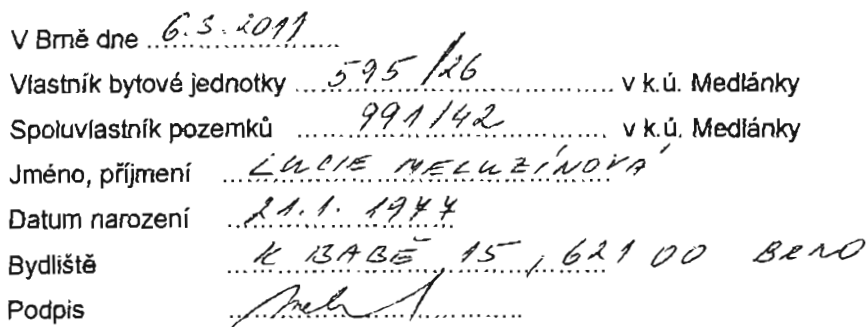 V Brně dne 6.3.2011
Vlastník bytové jednotky 595/26 v k.ú. Medlánky
Spoluvlastník pozemků 991/42 v k.ú. Medlánky
Jméno, příjmení LUCIE MELUZÍNOVÁ
Datum narození 21.1.1977
Bydliště K BABĚ 15, 621 00 BRNO
Podpis